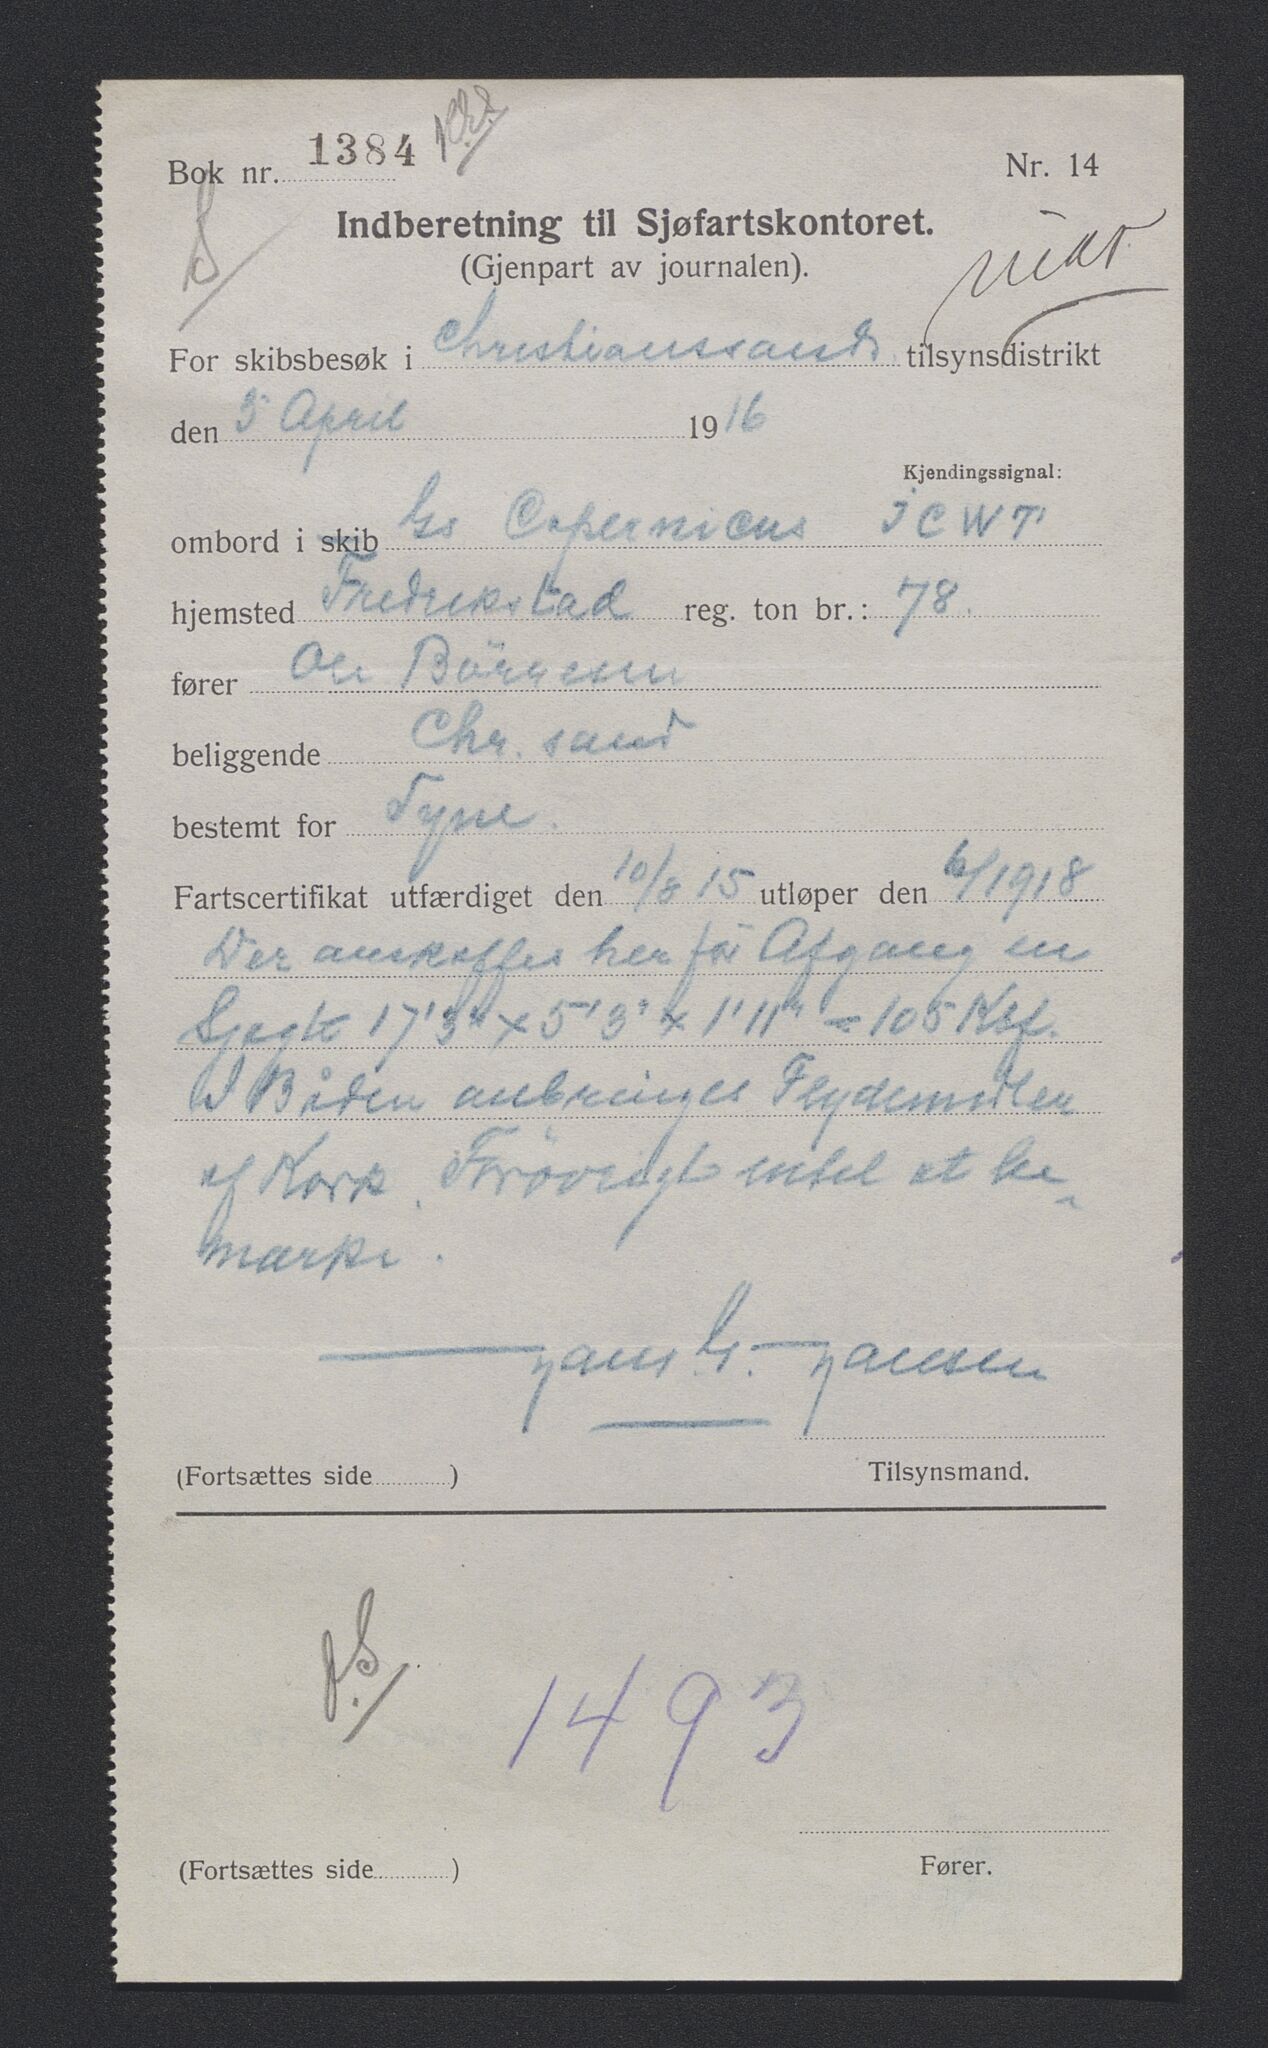 Bok nr. 1384
Nr. 14
Indberetning til Sjøfartskontoret.
(Gjenpart av journalen).
For skibsbesøk i Christianssands tilsynsdistrikt
den 5 April 1916
Kjendingssignal:
ombord i skib Gs Copernicus JCWT
hjemsted Fredrikstad reg. ton br.: 78.
fører Ole
beliggende Chr. sand
bestemt for Tyne.
Fartscertifikat utfærdiget den 10/8 15 utløper den 6/1918
Der anskaffes her før Afgang en
Sjegte 17'3" x 5'3" x 1'11" = 105 Kbf.
I Båden anbringes Flydemidler
af Kork. Forøvrigt intet at be-
mærke.
Hans G. Hansen
(Fortsættes side )
Tilsynsmand.
1493
(Fortsættes side )
Fører.